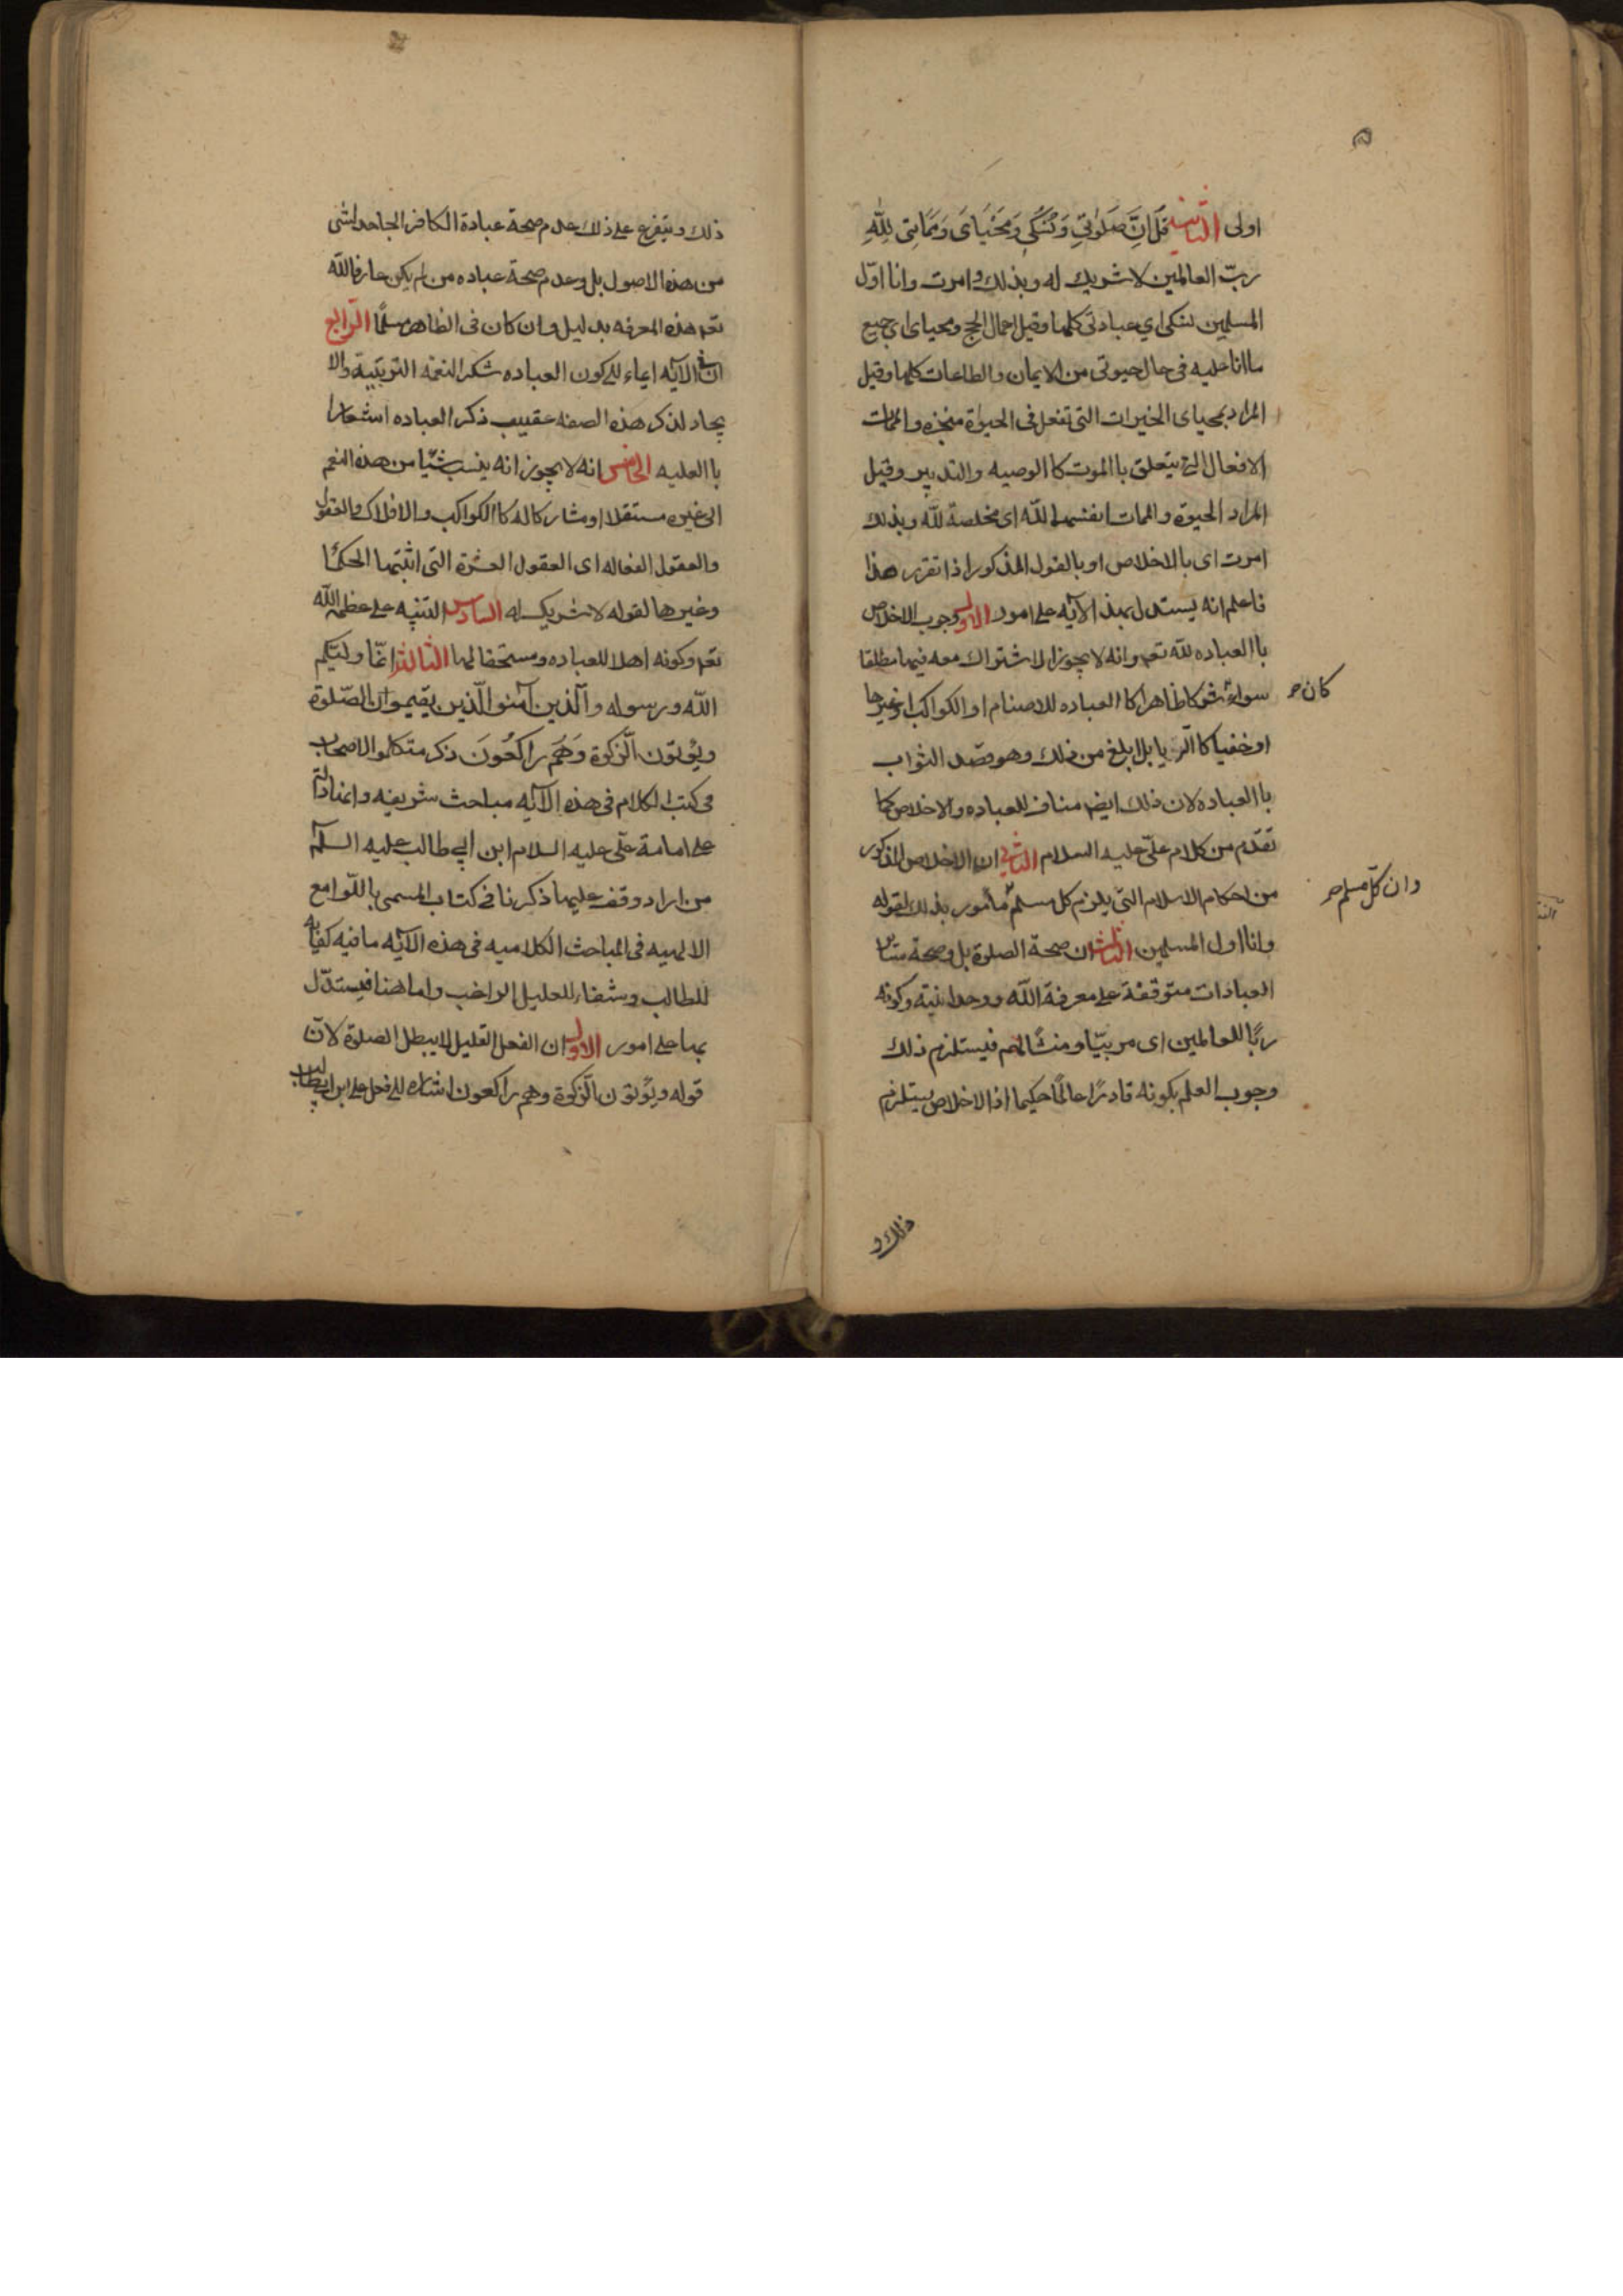 اولى الثانية قُلْ اِنَّ صَلَوٰتِي وَنُسُكِي وَمَحْيَايَ وَمَمَاتِي لِلّٰهِ
ربّ العالمين لا شريك له وبذلك امرت وانا اوّل
المسلمين نسكى اي عبادتى كلها وقيل اعمال الحج ومحياى اى جميع
ما انا عليه فى حال حيوتى من الايمان والطاعات كلها وقيل
المراد بمحياى الخيرات التى تفعل فى الحيوة منجزه والممات
الافعال التى يتعلق باالموت كاالوصيه والتدبير وقيل
المراد الحيوة والممات انفسهما لله اى مخلصة لله وبذلك
امرت اى باالاخلاص او بالقول المذكور اذا تقرر هذا
فاعلم انه يستدل بهذ الآيه على امور الاول وجوب الاخلاص
باالعباده لله تعـ وانه لا يجوز الاشتراك معه فيها مطلقا
سواء شركا ظاهرا كاالعباده للاصنام او الكواكب او غيرها
كان صح
او خفيا كاالريا بل ابلغ من ذلك وهو قصد الثواب
باالعباده لان ذلك ايضا مناف للعباده والاخلاص كما
تقدّم من كلام علىّ عليه السلام الثانى ان الاخلاص المذكور
من احكام الاسلام التى يلزم كل مسلم مأمور بذلك لقوله
وان كلّ مسلم صح
وانا اول المسلمين الثالث ان صحة الصلوة بل وصحة سائر
العبادات متوقفة على معرفة الله ووحدانيته وكونه
ربًا للعالمين اى مربيّا ومنشًا لهم فيستلزم ذلك
وجوب العلم بكونه قادرًا عالمًا حكيما اذ الاخلاص يستلزم
ذلك و
ذلك ويتفرع على ذلك عدم صحة عبادة الكافر الجاحد لشى
من هذه الاصول بل وعدم صحة عباده من لم يكن عارفا لله
تعـ هذه المعرفه بدليل وان كان فى الظاهر مسلمًا الرّابع
ان فى الآيه ايماء الى كون العباده شكر النعمة التربيبية والا
يجاد لذكر هذه الصفه عقيب ذكر العباده اشعارا
باالعليه الخامس انه لا يجوز انه ينسب شيًا من هذه النعم
الى غيره مستقلا او مشاركا له كاالكواكب والافلاك والعقول
والعقول الفعاله اى العقول العشرة التى اثبتها الحكما
وغيرها لقوله لا شريك له السادس التنبه على عظمة الله
تعـ وكونه اهلا للعباده ومستحقا لها الثالثه انمّا وليّكم
الله ورسوله والّذين آمنو الّذين يقيموان الصّلوة
ويُؤتون الّزكوة وَهُم رَاكعُونَ ذكر متكلموا الاصحاب
فى كتب الكلام فى هذه الآيه مباحث شريفه وانها دالة
على امامة علّى عليه السلام ابن ابي طالب عليه السلام
من اراد وقف عليها ذكرنا فى كتاب المسمى باللّوامع
الالهيه فى المباحث الكلاميه فى هذه الآيه ما فيه كفايه
للطالب وشفاء للعليل الراغب واما هنا فيستدّل
بها على امور الاول ان الفعل القليل لا يبطل الصلوة لانّ
قوله ويُؤتون الّزكوة وهم راكعون اشاره الى فعل على ابن ابيطالب